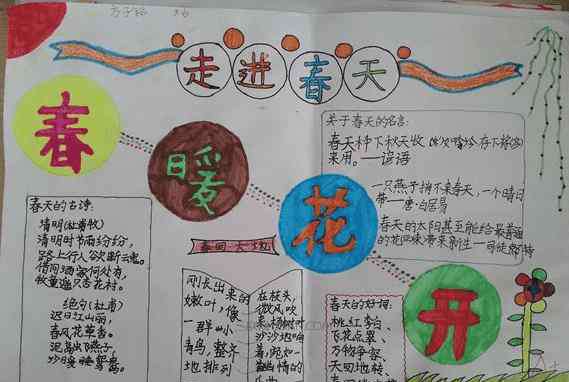 走进春天
春
暖
花
开
关于春天的名言:
春天种下秋天收
来用。——谚语
一只燕子捎不来春天,一个晴日
带
春天的太阳甚至能给最普通
的花
春天的古诗:
清明(杜牧)
清明时节雨纷纷,
路上行人欲断魂。
借问酒家何处有,
牧童遥
花村。
绝句(杜甫)
迟日江山丽,
春风花草香。
泥融飞燕子,
沙暖睡鸳鸯。
春回大地
刚长出来的
嫩叶,像
一群小
鸟,整齐
地排列
在枝头,
微风吹
沙沙地响
着,宛如一
春天的好词:
桃红李白、
飞花点翠、
万物争春、
春回地转、